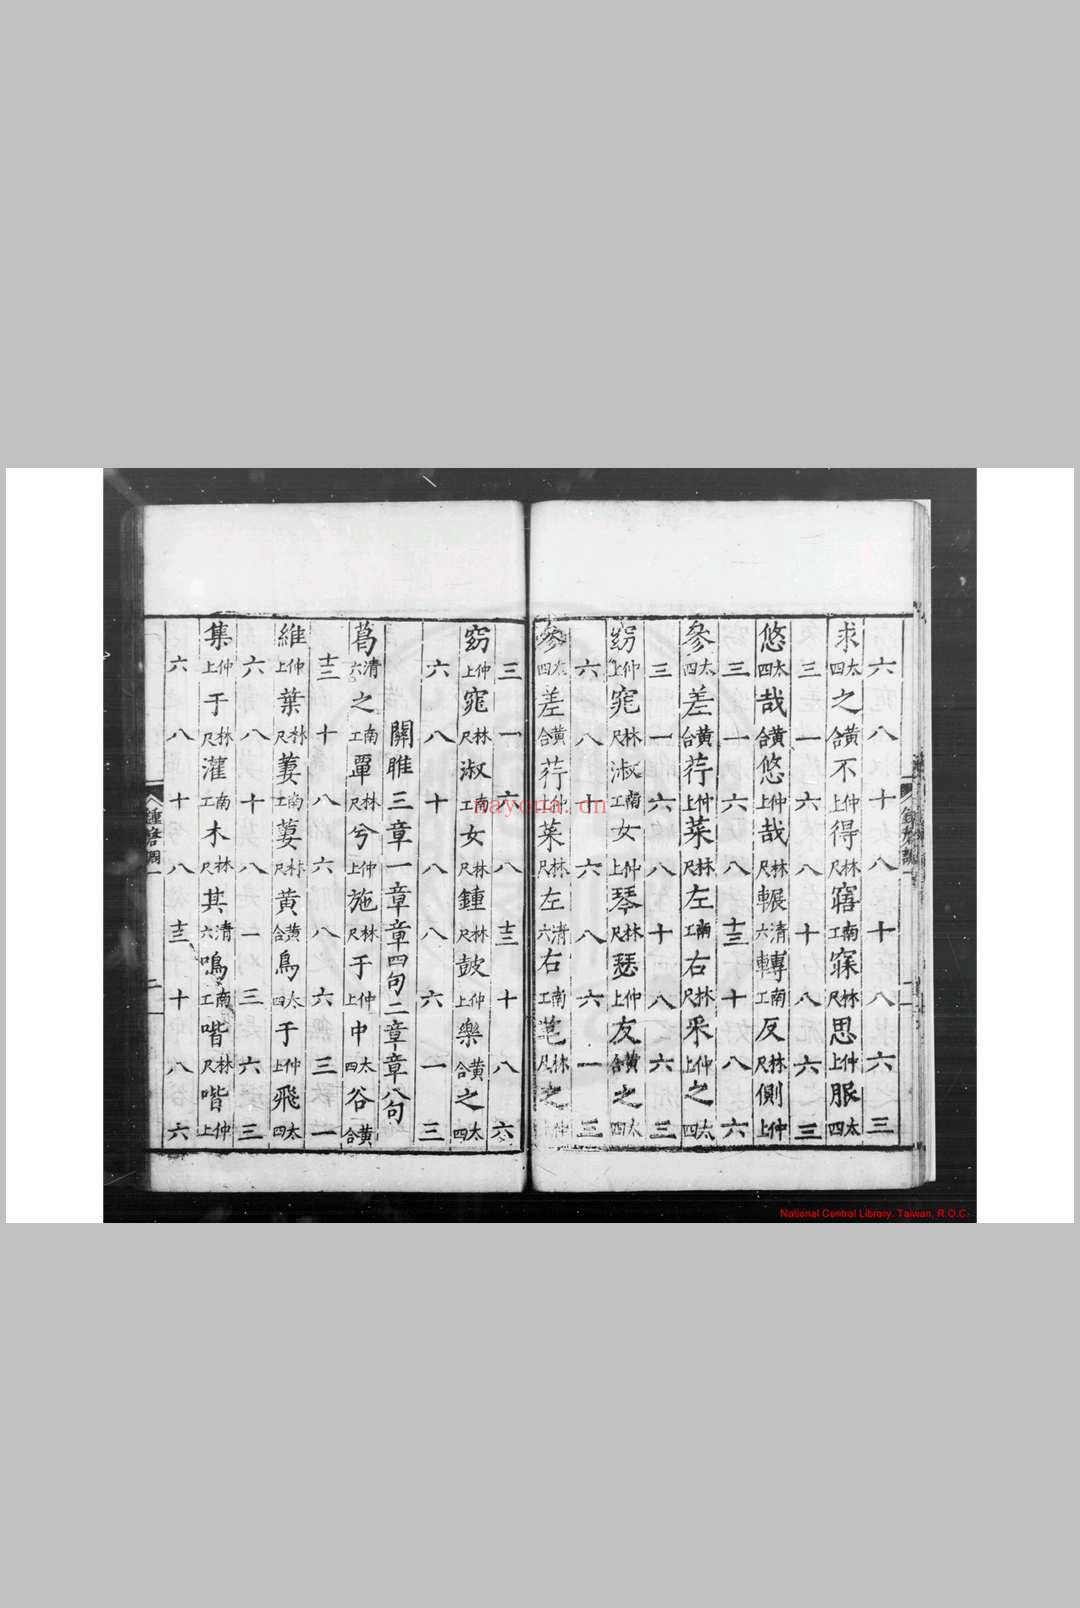 六八十八十八六三
求太四之黃合不仲上得林尺寤南工寐林尺思仲上服太四
三一六八十八六三
悠太四哉黃合悠仲上哉林尺輾清六轉南工反林尺側仲上
三一六八十三十八六
參太四差黃合荇仲上菜林尺左南工右林尺采仲上之太四
三一六八十八六三
窈仲上窕林尺淑南工女仲上琴林尺瑟仲上友黃合之太四
六八十六八六一三
參太四差黃合荇仲上菜林尺左清六右南工芼林尺之仲
三一六八十三十八六
窈仲上窕林尺淑南工女林尺鍾林尺鼓仲上樂黃合之太四
六八十八八六一三
關雎三章一章章四句二章章八句
葛清六之南工覃林尺兮仲上施林尺于仲上中太四谷黃合
十三十八六八六三一
維仲上葉林尺萋南工萋林尺黃黃合鳥太四于仲上飛太四
六八十八一三六三
集仲上于林尺灌南工木林尺其清六鳴南工喈林尺喈仲上
六八十八十三十八六
二
National Central Library, Taiwan, R.O.C.
nayona.cn